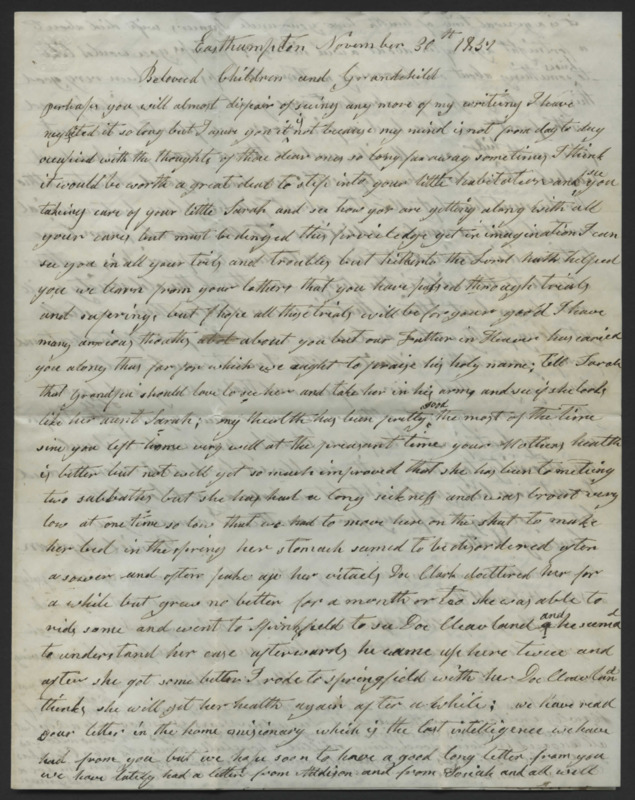 Easthampton November 30th 1837
Beloved Children and Grandchild
perhaps you will almost dispair of seeing any more of my writeing I have
neglected it so long but I asure you it is not because my mind is not from day to day
occupied with the thoughts of those dear ones so long far away sometimes I think
it would be worth a great deal to step into your little habitation and see you
takeing care of your little Sarah and see how you are getting along with all
your cares but must be dinyed this priviledge yet in imagination I can
see you in all your toils and troubles but hitherto the Lord hath helped
you we learn from your letters that you have passed through trials
and suferings but I hope all these trials will be for your good I have
many anxious thoughts about you but our Father in Heaven has caried
you along thus far for which we ought to praise his holy name; tell Sarah
that Grandpa should love to see her and take her in his arms and see if she looks
like her aunt Sarah; my health has been pretty good the most of the time
sine you left home very well at the preasant time your Mothers health
is better but not well yet so much improved that she has been to meeting
two sabbaths but she has had a long sickness and was brout very
low at one time so low that we had to move her on the sheat to make
her bed in the spring her stomach seemed to be disordered often
a sower and often  up her vitaels Doc Clark doctered her for
a while but grew no better for a month or two she was able to
ride some and went to Springfield to see Doc Cleavland and he seemed
to understand her case afterwards he came up here twice and
after she got some better I rode to springfield with her Doc Cleavland
thinks she will get her health again after a while; we have read
your letter in the home misionary which is the last intelligence we have
had from you but we hope soon to have a good long letter from you
we have lately had a letter from Addison and from Josiah and all well